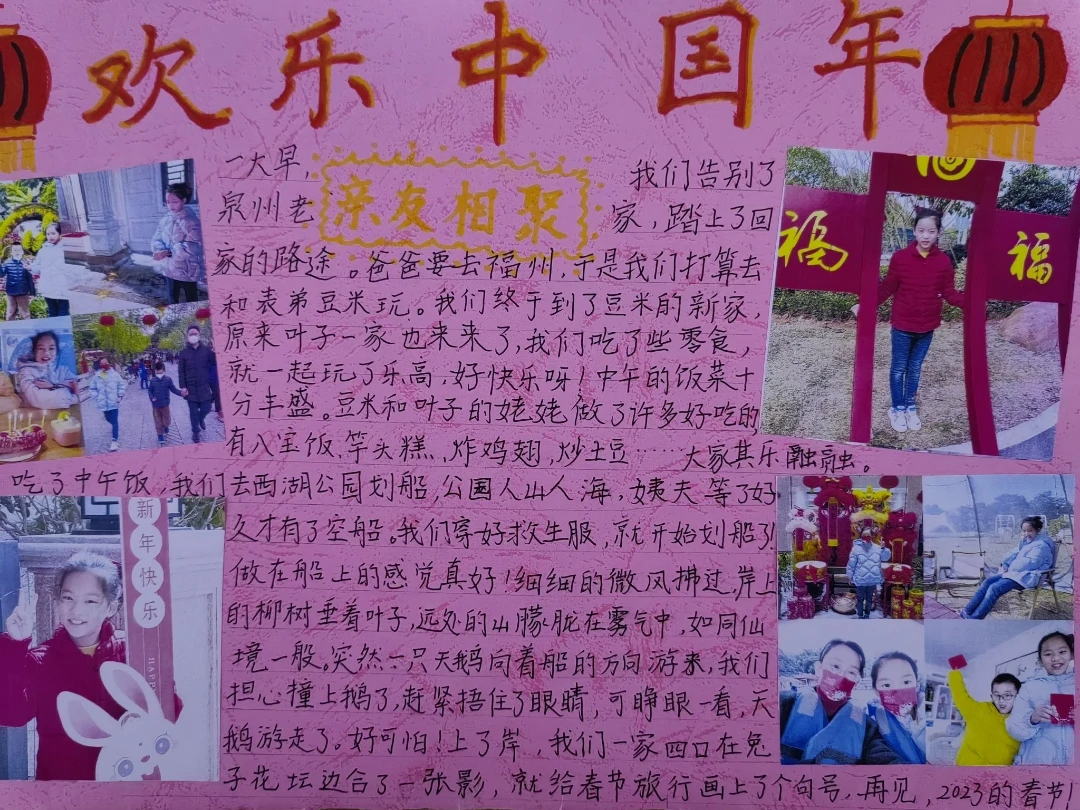 欢乐中国年
亲友相聚
一大早，我们告别了
泉州老家，踏上了回
家的路途。爸爸要去福州，于是我们打算去
和表弟豆米玩。我们终于到了豆米的新家，
原来叶子一家也来来了，我们吃了些零食，
就一起玩了乐高，好快乐呀！中午的饭菜十
分丰盛。豆米和叶子的姥姥做了许多好吃的
有八宝饭，竽头糕，炸鸡翅，炒土豆……大家其乐融融。
吃了中午饭，我们去西湖公园划船，公园人山人海，姨夫等了好
久才有了空船。我们穿好救生服，就开始划船了！
做在船上的感觉真好！细细的微风拂过，岸上
的柳树垂着叶子，远处的山朦胧在雾气中，如同仙
境一般。突然一只天鹅向着船的方向游来，我们
担心撞上鹅了，赶紧捂住了眼睛，可睁眼一看，天
鹅游走了。好可怕！上了岸，我们一家四口在兔
子花坛边合了一张影，就给春节旅行画上了个句号，再见，2023的春节！
福
福
新年快乐
HAPP